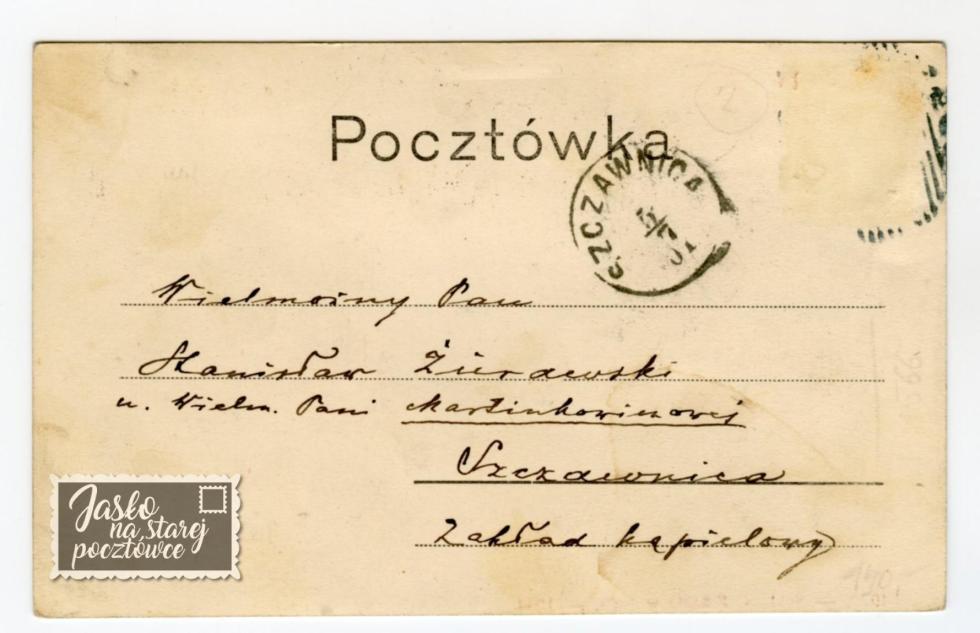 2
Pocztówka
SZCZAWNICA
7
01
Wielmożny Pan
Stanisław Żurawski
u. Wielm. Pani Martinkowiczowej
Szczawnica
Zakład kąpielowy
Jasło
na starej
pocztówce
150,-